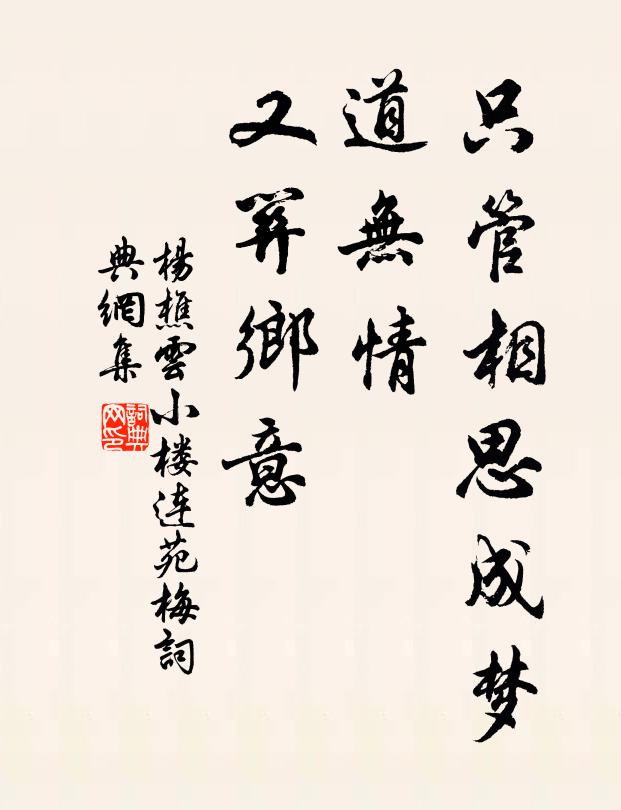 只管相思成梦
道無情
又关鄉意
楊樵雲小楼连苑梅詞
典網集
詞典
网印